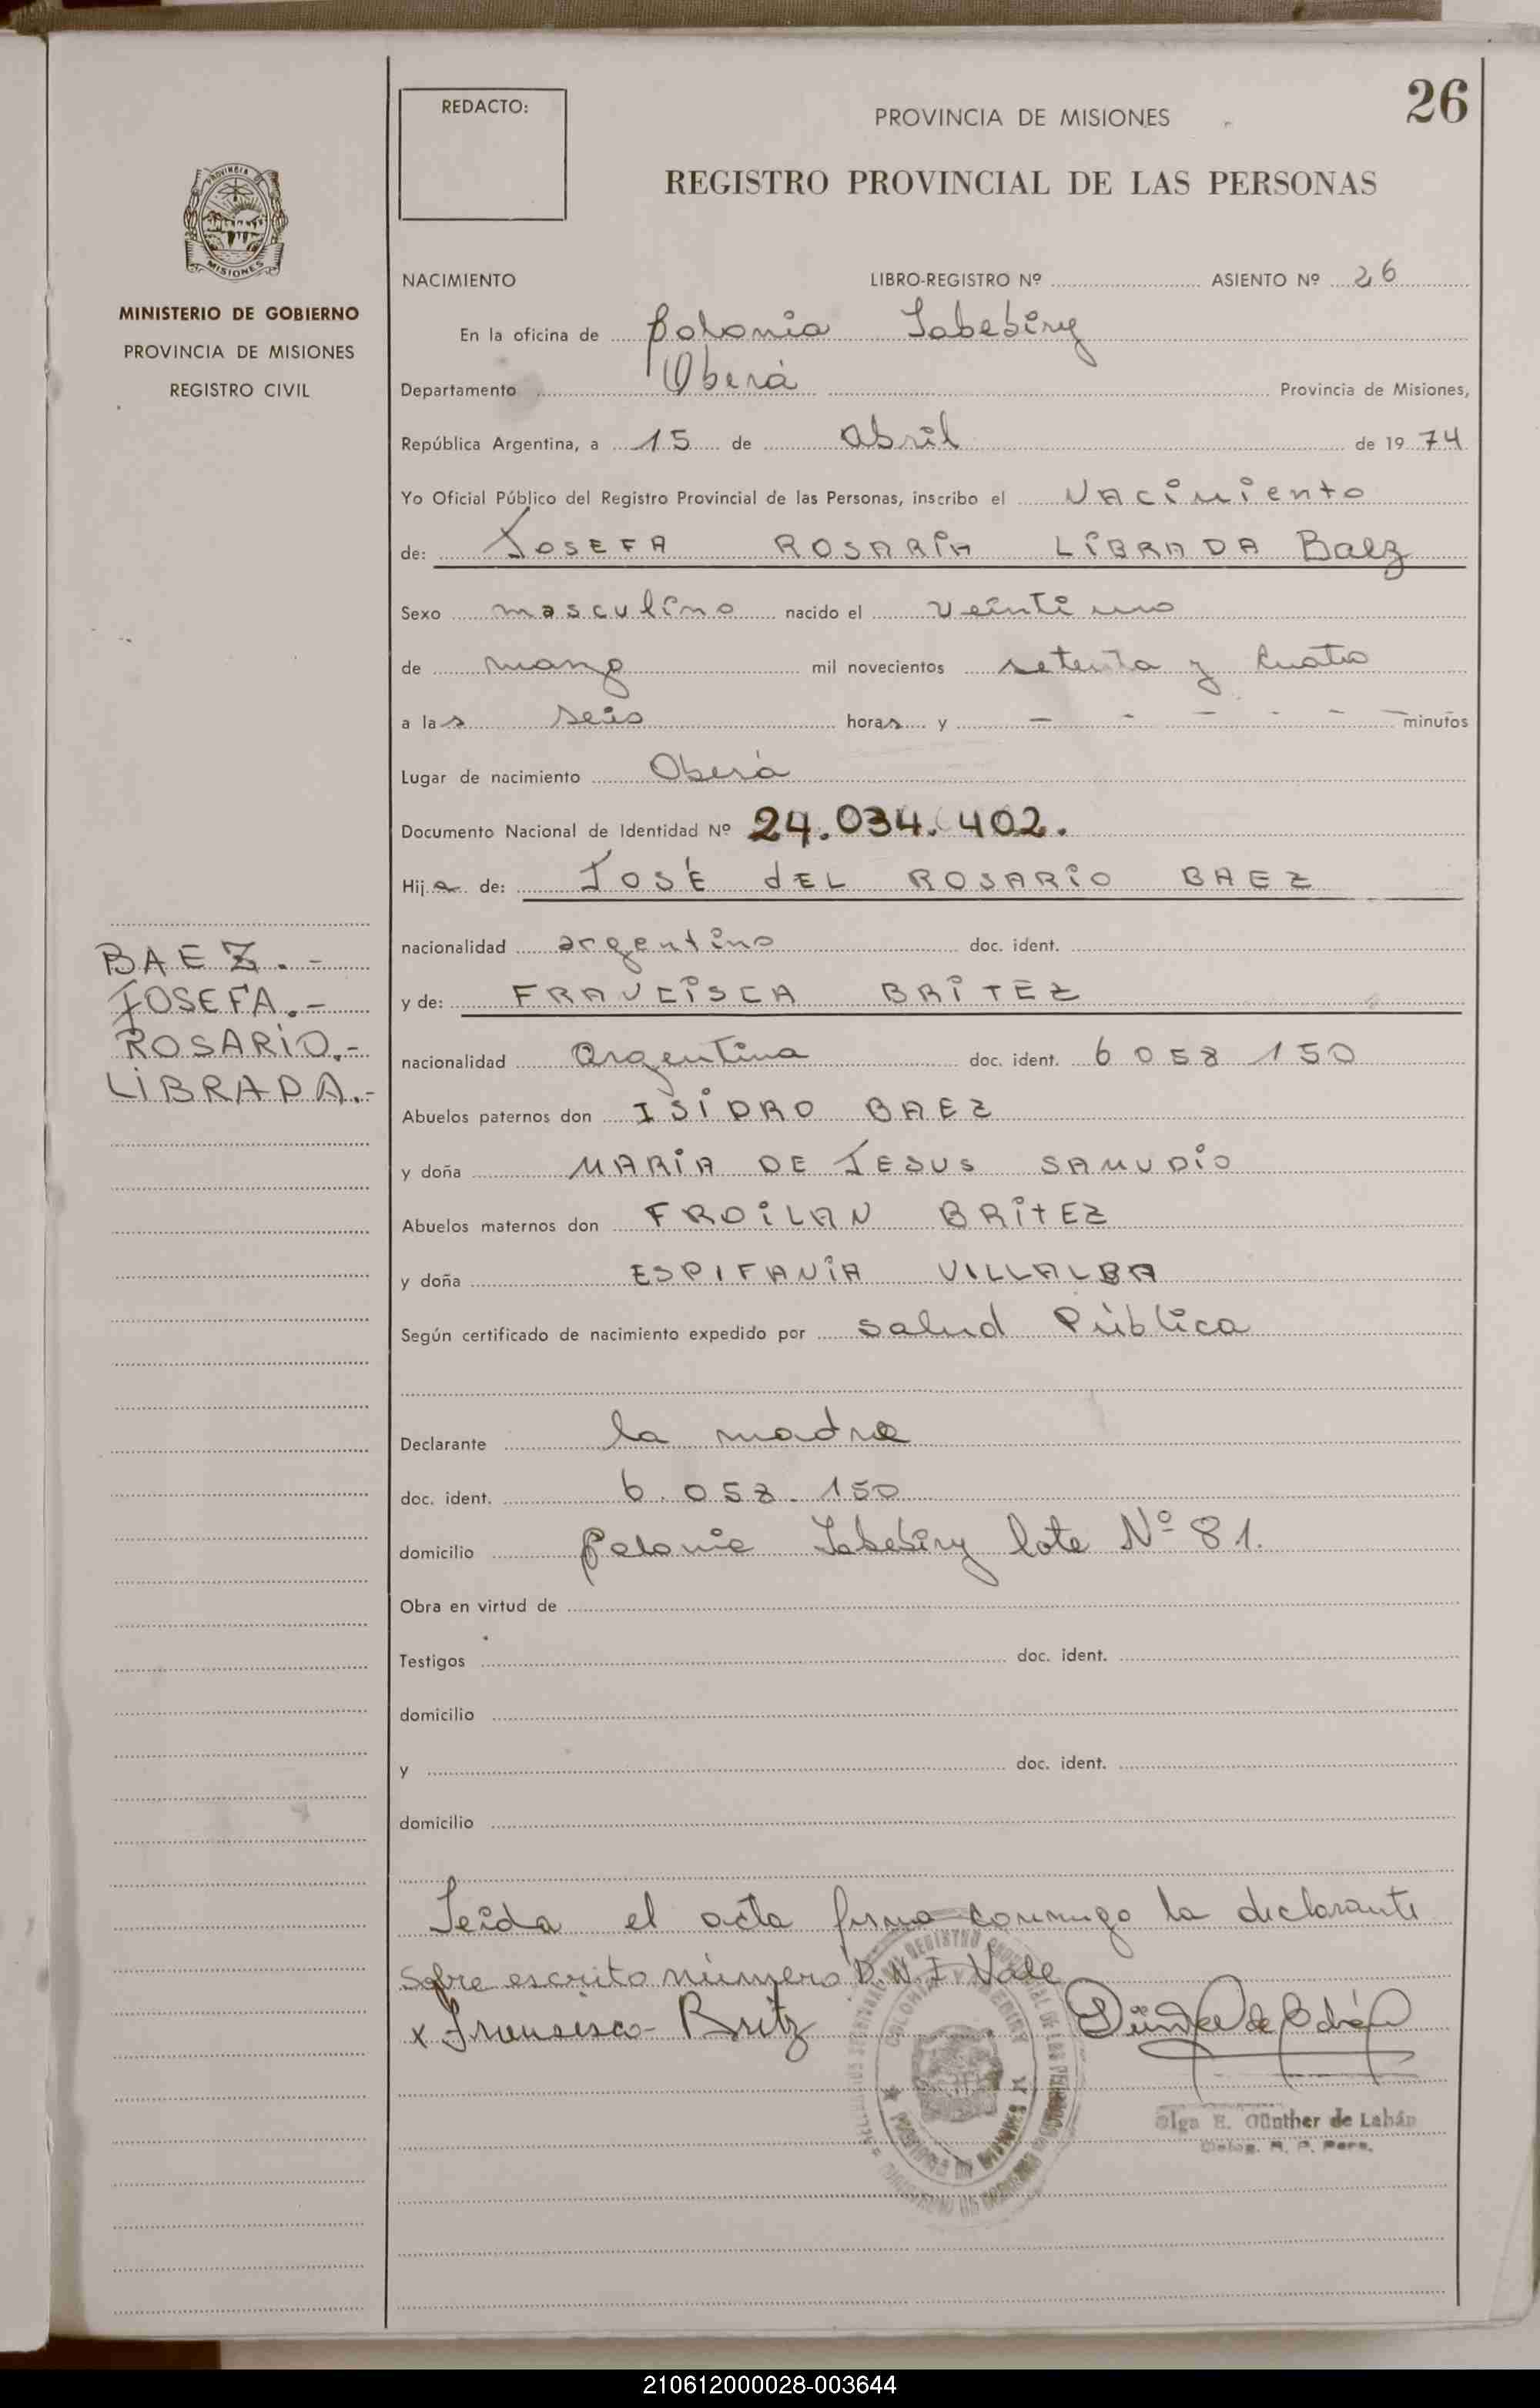 26
REDACTO:
PROVINCIA DE MISIONES
REGISTRO PROVINCIAL DE LAS PERSONAS
MISIONES
MINISTERIO DE GOBIERNO
PROVINCIA DE MISIONES
REGISTRO CIVIL
NACIMIENTO LIBRO-REGISTRO Nº ASIENTO Nº 26
En la oficina de Colonia Yabebiry
Departamento Oberá Provincia de Misiones,
República Argentina, a 15 de abril de 1974
Yo Oficial Público del Registro Provincial de las Personas, inscribo el Nacimiento
de: JOSEFA ROSARIA LIBRADA Baez
Sexo masculino nacido el veintiuno
de marzo mil novecientos setenta y cuatro
a las seis horas y - - - - - - minutos
Lugar de nacimiento Oberá
Documento Nacional de Identidad Nº 24.034.402.
Hija de: JOSÉ dEL ROSARIO BAEZ
nacionalidad argentino doc. ident.
y de: FRANCISCA BRITEZ
nacionalidad Argentina doc. ident. 6 058 150
Abuelos paternos don ISIDRO BAEZ
y doña MARIA DE JESUS SAMUDIO
Abuelos maternos don FROILAN BRITEZ
y doña ESPIFANIA VILLALBA
Según certificado de nacimiento expedido por Salud Pública
Declarante la madre
doc. ident. 6.058.150
domicilio Colonia Yabebiry lote Nº 81.
Obra en virtud de
Testigos doc. ident.
domicilio
y doc. ident.
domicilio
Leida el acta firma conmigo la declarante
Sobre escrito número D.N.I. Vale
x Fransisca Britz
Olga E. Günther de Labán
Deleg. R. P. Pers.
BAEZ.-
JOSEFA.-
ROSARIO.-
LIBRADA.-
210612000028-003644